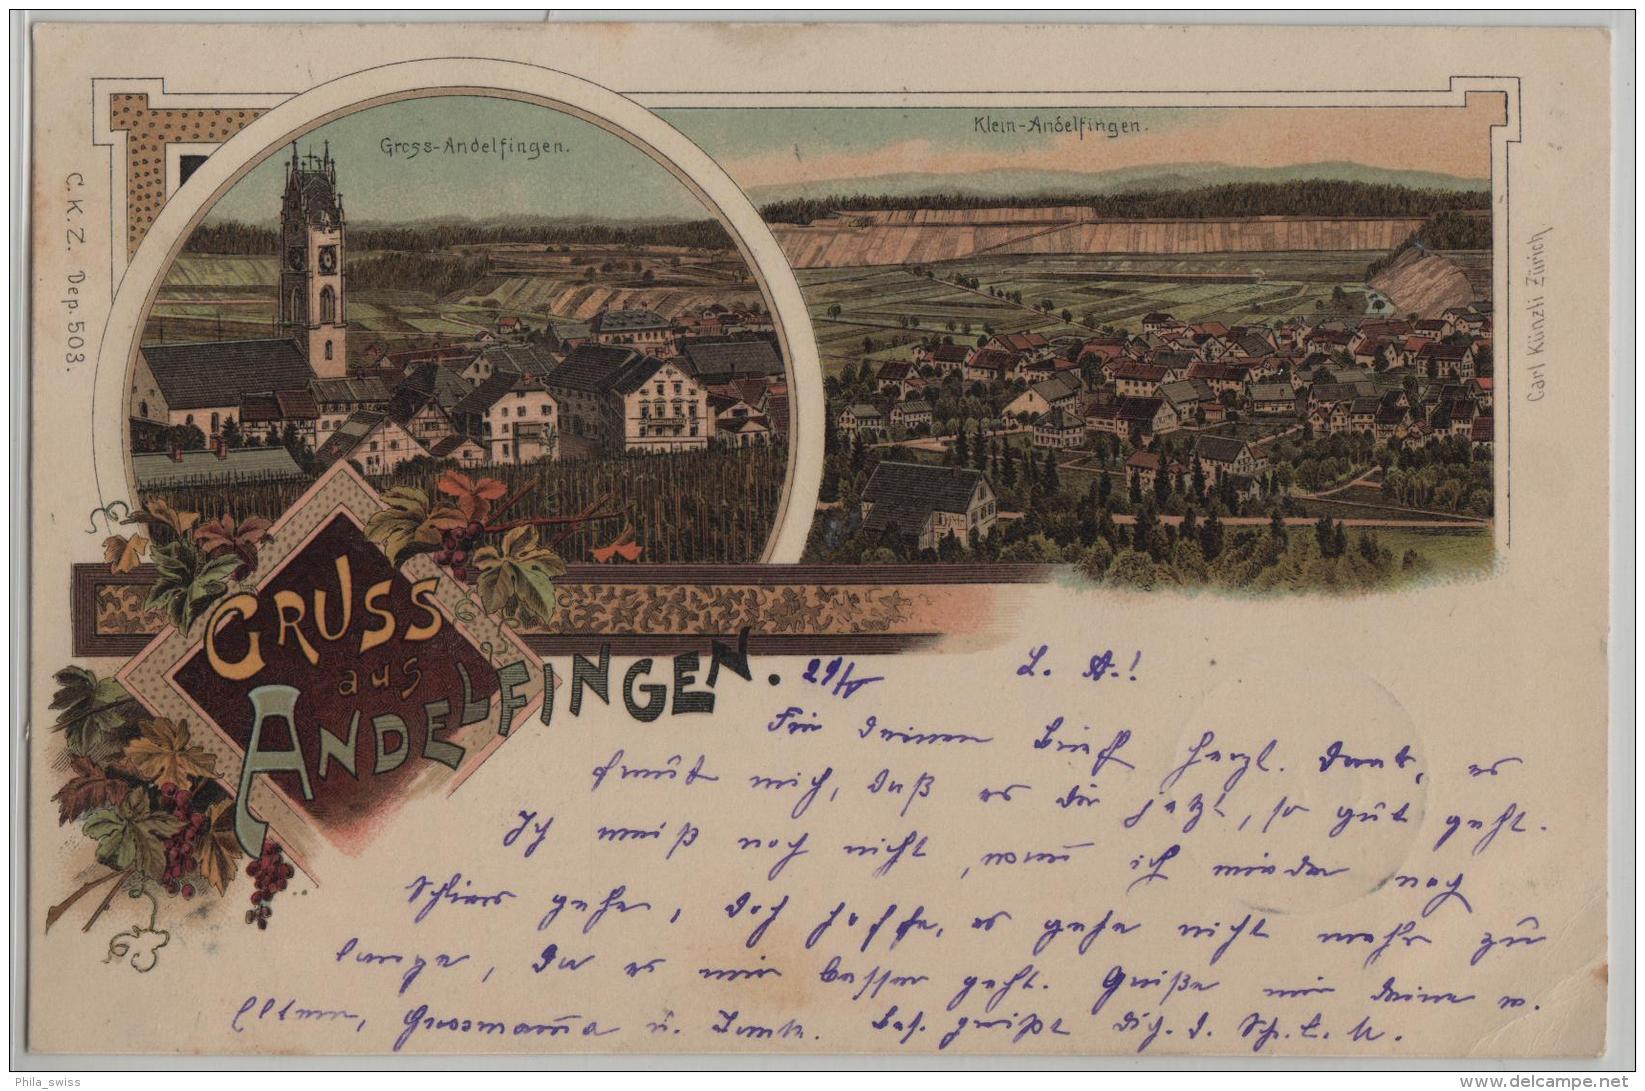 Gross-Andelfingen.
Klein-Andelfingen.
C.K.Z. Dep. 503.
Carl Künzli Zürich
GRUSS
aus
ANDELFINGEN.
29/V L. A.!
Für deinen Brief herzl. Dank, es
freut mich, daß es dir jetzt, so gut geht.
Ich weiß noch nicht, wann ich wieder nach
Schlieren gehe, doch hoffe, es gehe nicht mehr zu
lange, da es mir besser geht. Grüße mir deine w.
Eltern, Grossmama u. Tante. Bes. grüßt dich d. Sch. L. M.
Phila_swiss
delcampe.net